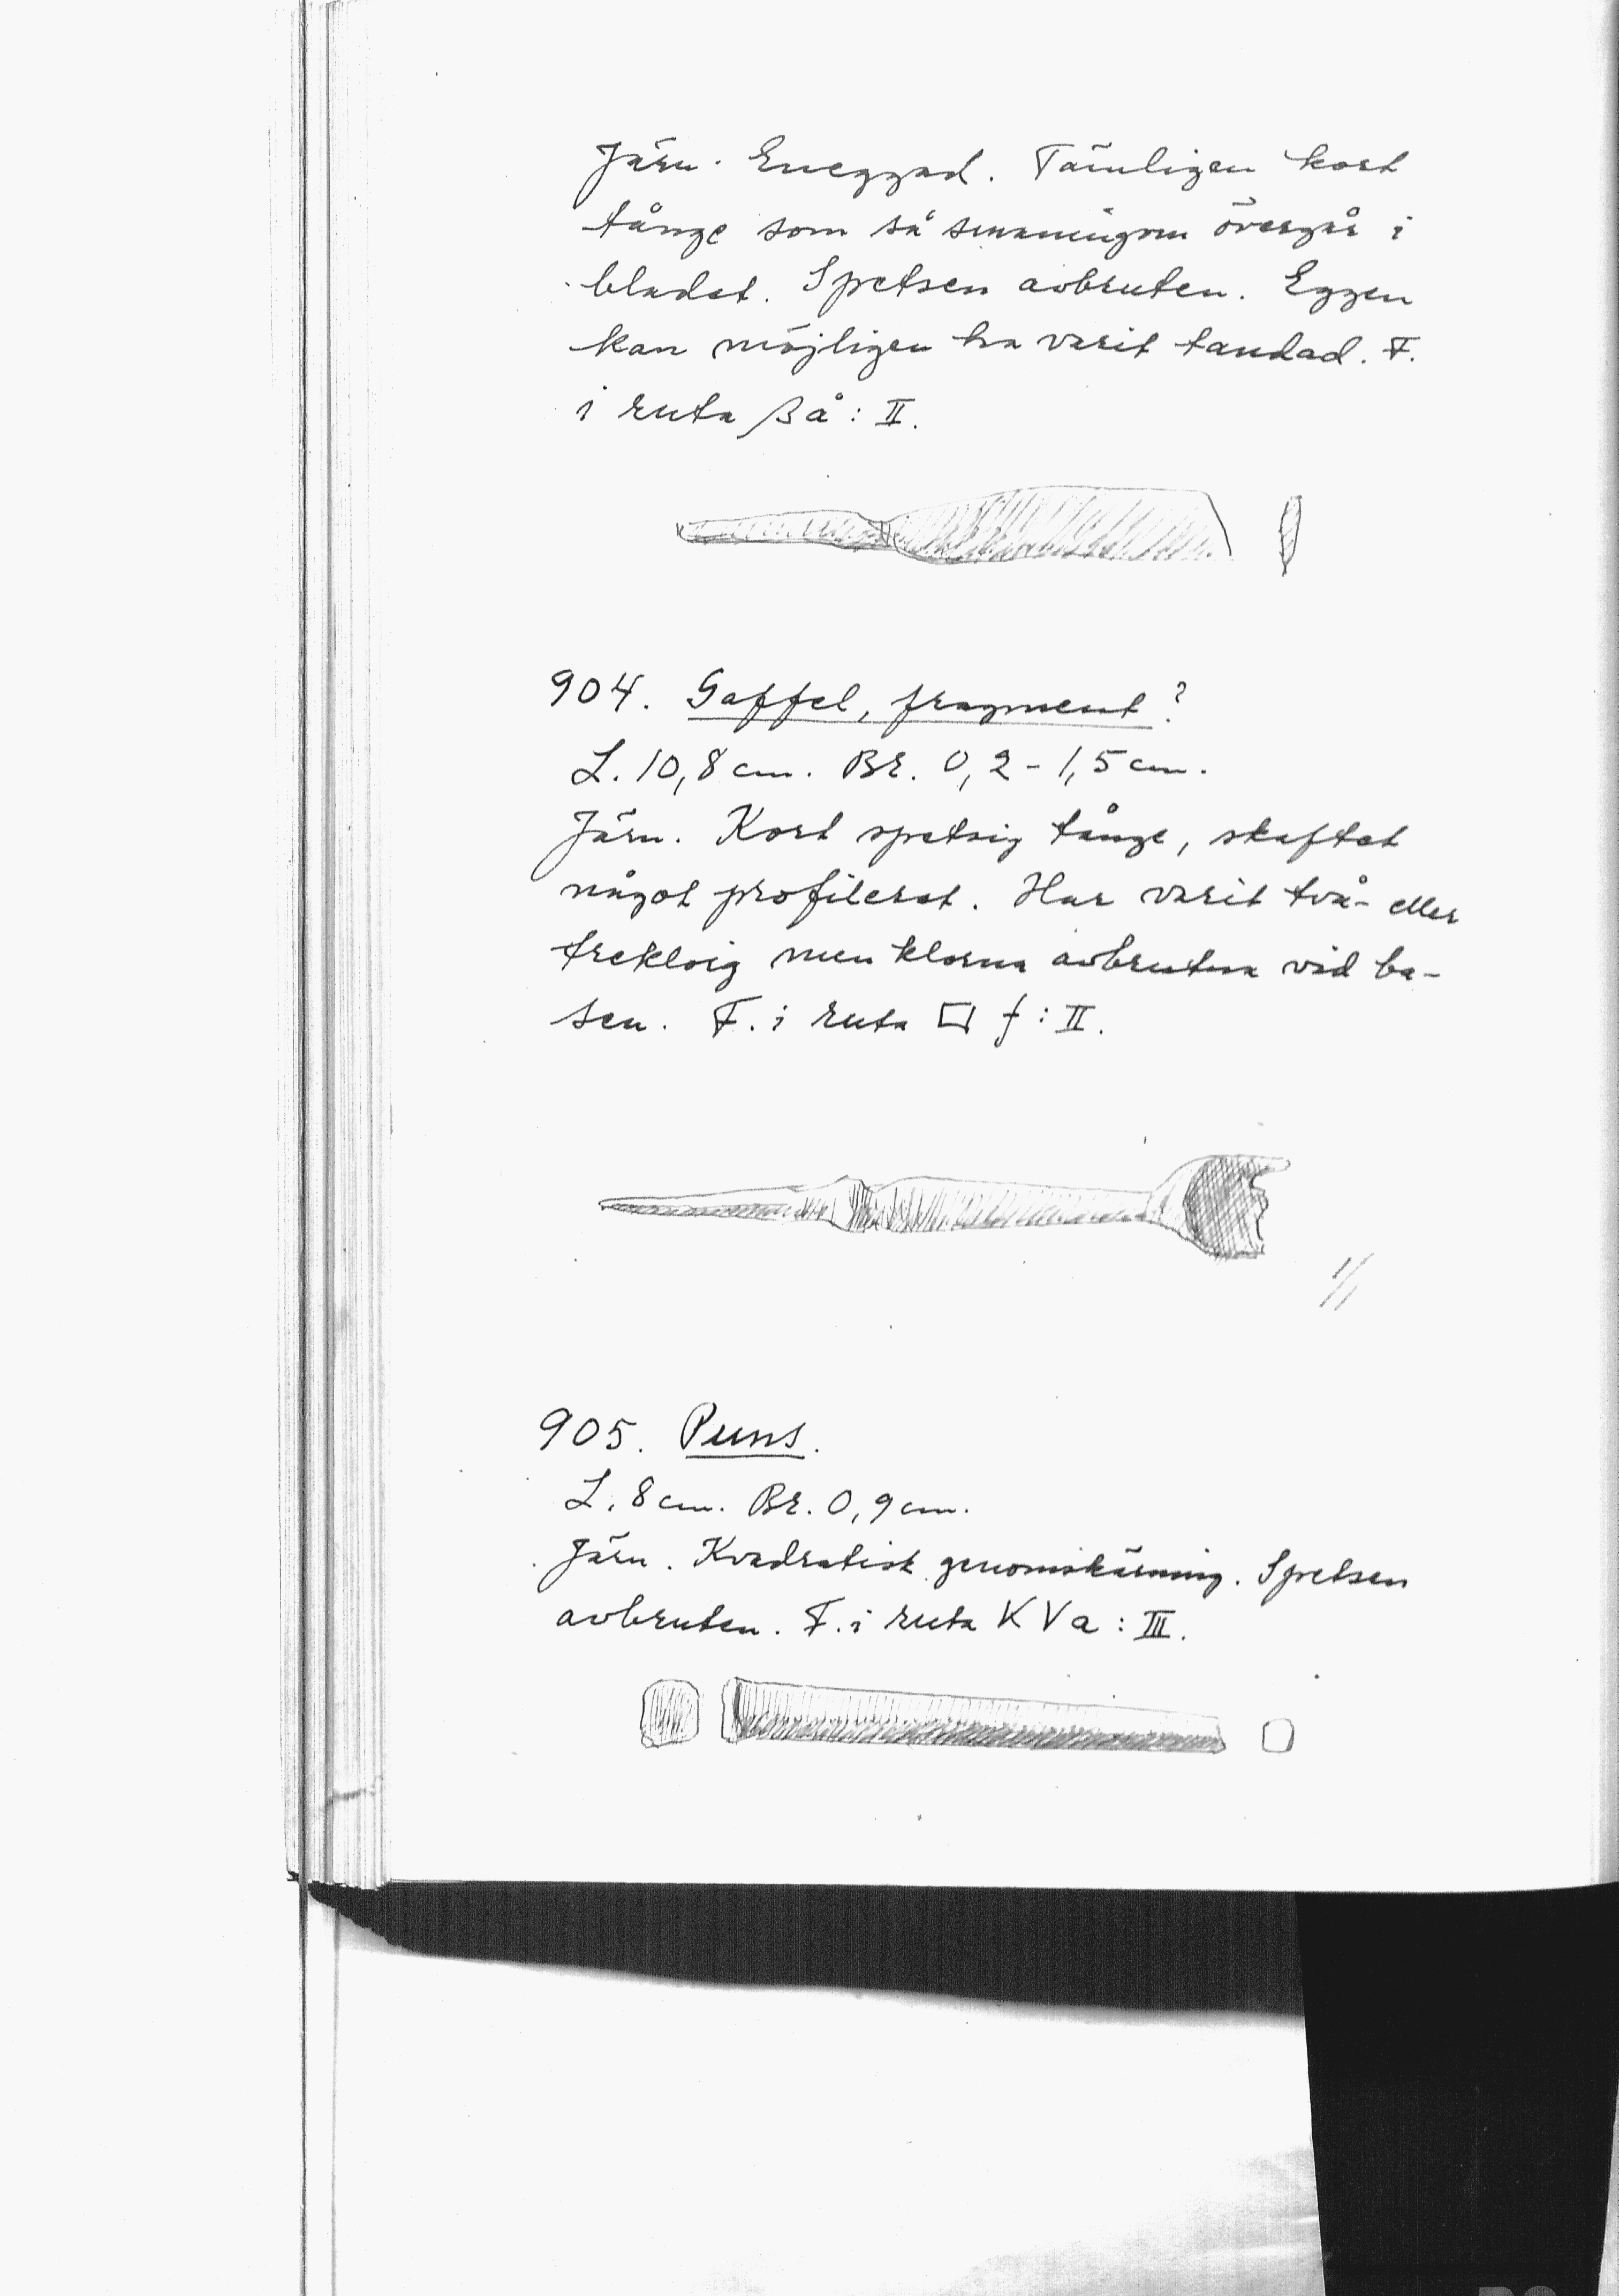 Järn. Eneggad. Tämligen kort
tånge som så smaningom övergår i
bladet. Spetsen avbruten. Eggen
kan möjligen ha varit tandad. F.
i ruta βå: II.
904. Gaffel, fragment?
L. 10,8 cm. Br. 0,2-1,5 cm.
Järn. Kort spetsig tånge, skaftet
något profilerat. Har varit två- eller
trekloig men klorna avbrutna vid ba-
sen. F. i ruta □ f: II.
1/1
905. Puns.
L. 8 cm. Br. 0,9 cm.
Järn. Kvadratisk genomskärning. Spetsen
avbruten. F. i ruta KVa: III.